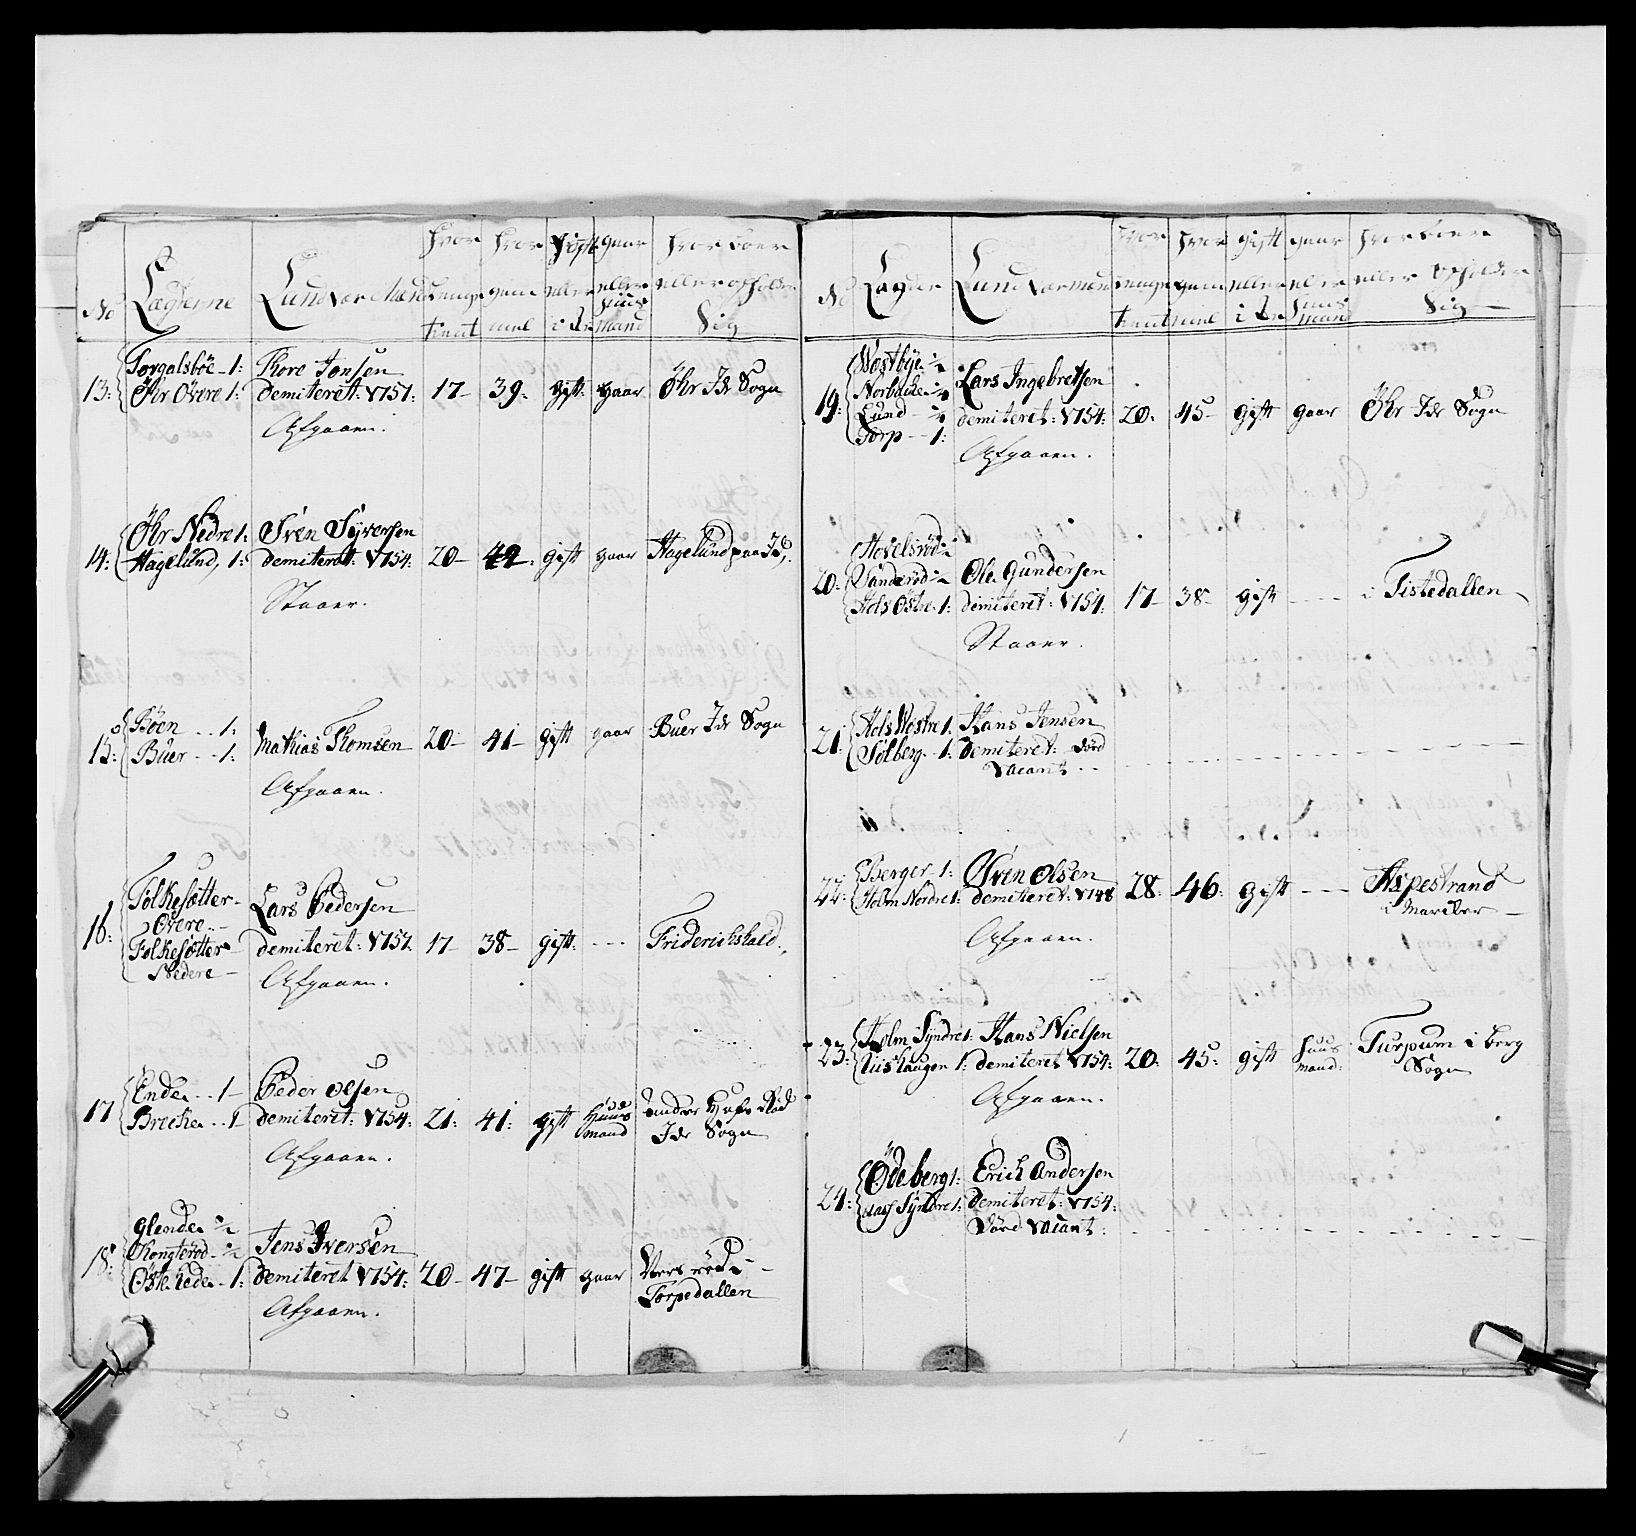 No
Lægderne
Land Vær Mænd
hvor længe tient
hvor gammel
gift eller ei
gaar eller huus mand
hvor boer eller opholder Sig
13:
Torgalsböe - 1:
Öhr Övere 1:
Thore Jonsen
demiteret: 1757:
Afgaaen.
17 - 39. gift: gaar Öhr Ide Sogn
14:
Öhr Nedre 1:
Hagelund, 1:
Sven Syversen
demiteret: 1754:
Staaer.
20 - 42: gift gaar Hagelund paa Id,
15:
Böen .. 1:
Buer .. 1:
Mathias Thomsen
Afgaaen.
20 - 41 - gift gaar Buer Ide Sogn
16:
Folkesætter -
Övere .. -
Folkesætter
Nedere -
Lars Pedersen
demiteret: 1757.
Afgaaen.
17 - 38 - gift. --- Friderichshald.
17
Ender .. 1 -
Brecke .. 1
Peder Olsen
demiteret: 1754:
Afgaaen.
21: 41: gift Huus mand
under
Ide Sogn
18:
Glende ½
Kongteröd - ½
- 1:
Jens Iversen
demiteret 1754:
Afgaaen.
20 - 47 - gift gaar
Torpedallen
No
Lægder
Land Værmænd
længe tient
hvor gammel
gift eller ei
gaar eller huus mand
hvor boer eller opholder Sig
19:
Westbye
Norbacke
Lund
Torp - 1:
Lars Ingebretsen
demiteret: 1754:
Afgaaen.
20: 45 - gift gaar Öhr Ide Sogn
20:
Hovelsröd
Vanderöd
Hols Østre . 1:
Ole Gundersen
demiteret: 1754:
Staaer.
17 - 38 - gift --- i Tistedallen
21:
Hols Westre 1:
Solberg - 1:
Hans Jensen
demiteret: död
Vacant --
22:
Berger . 1:
Holm Nordre 1:
Sven Olsen
demiteret: 1748
Afgaaen.
28 - 46: gift --- Aspestrand
i Marcker
23:
Holm Syndre 1:
1:
Hans Nielsen
demiteret 1754:
Afgaaen.
20: 45: gift huus mand: Turpum i berg
Sogn
24:
Ödeberg 1:
Aas Syndre 1:
Erich Andersen
demiteret: 1754:
Död Vacant: